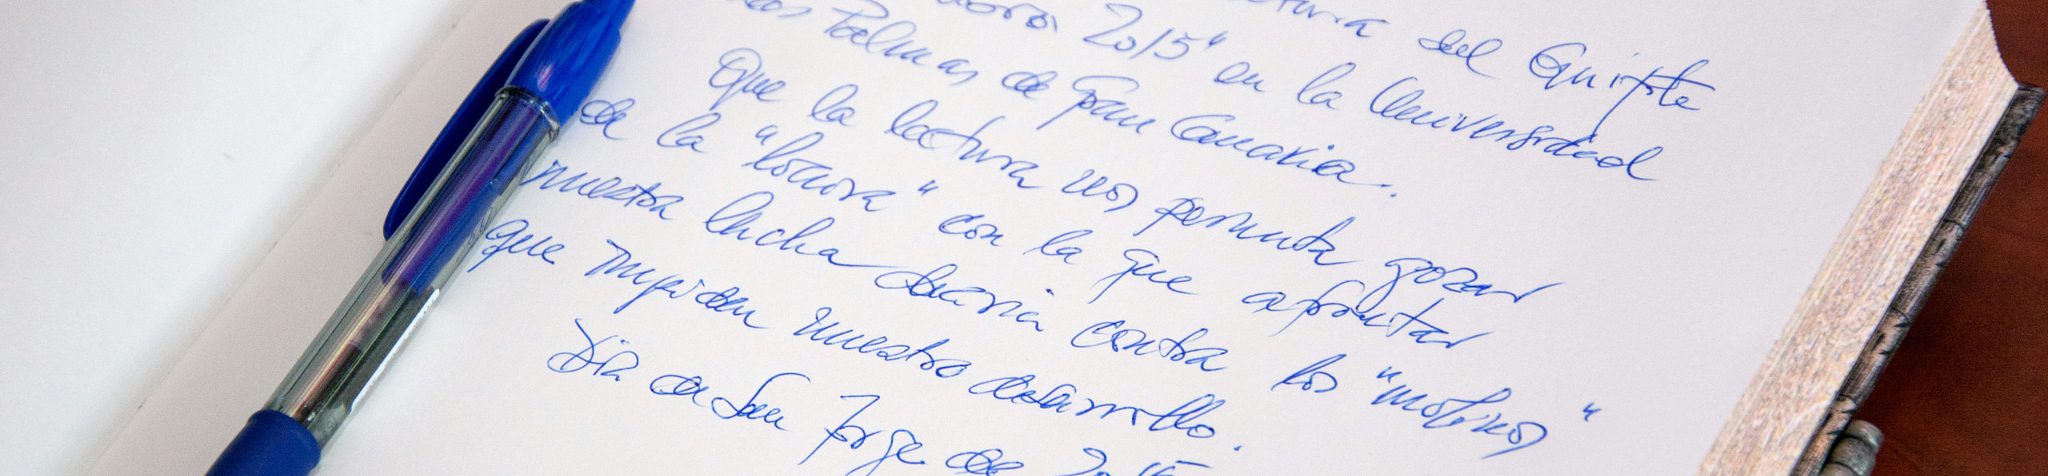 lectura del Quijote
2015" en la Universidad
Las Palmas de Gran Canaria.
Que la lectura nos permita gozar
de la "locura" con la que afrontar
nuestra lucha diaria contra los "molinos"
que impiden nuestro desarrollo.
Día de San Jorge de 2015